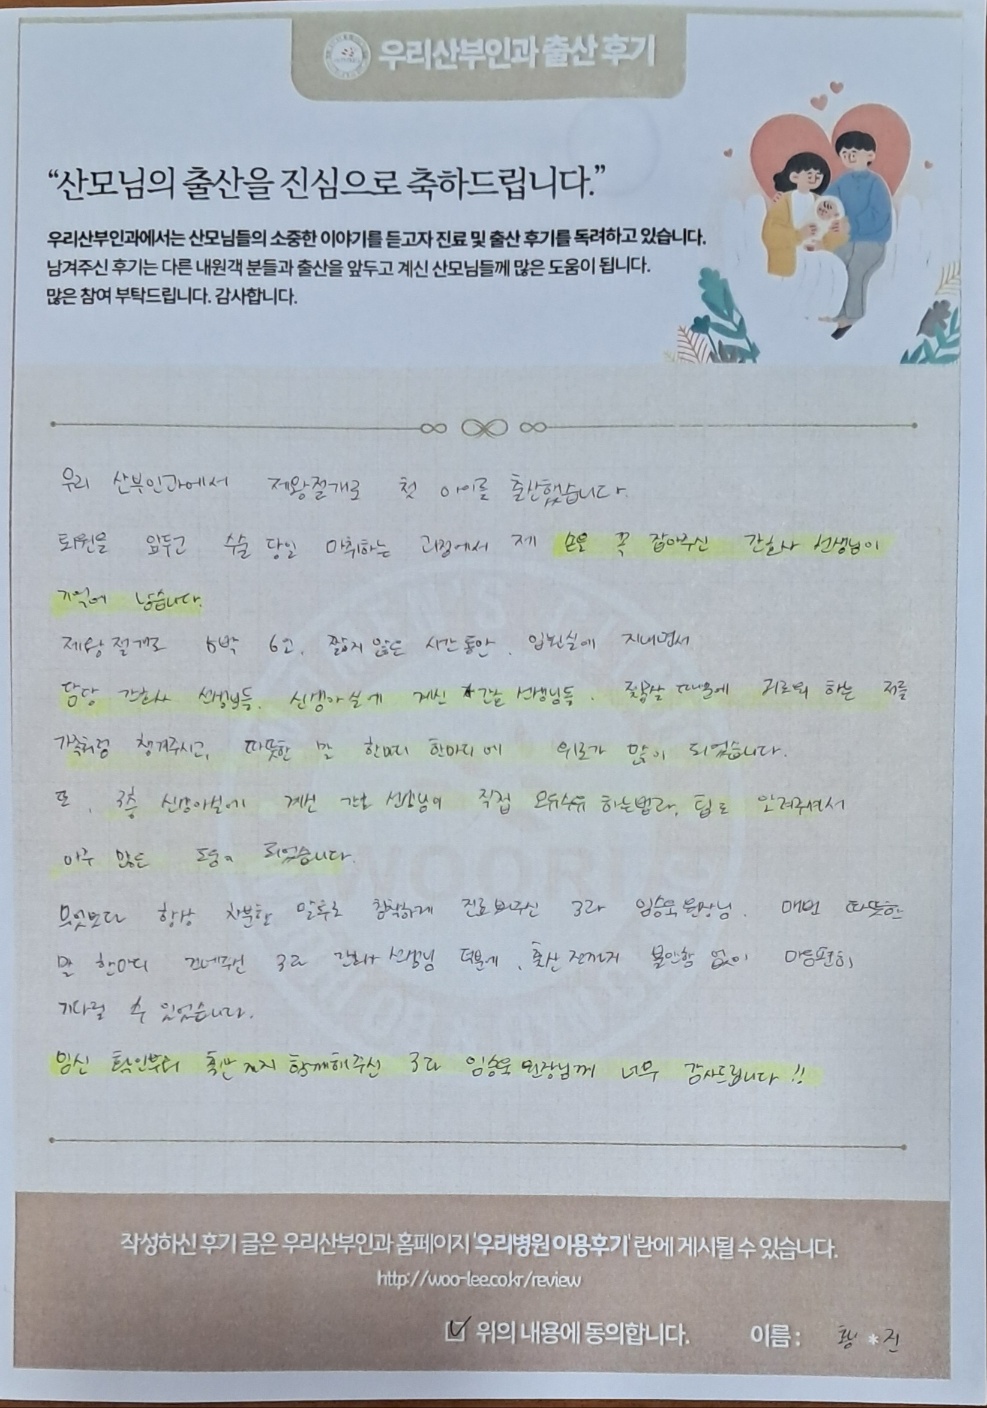 우리산부인과 출산 후기
“산모님의 출산을 진심으로 축하드립니다.”
우리산부인과에서는 산모님들의 소중한 이야기를 듣고자 진료 및 출산 후기를 독려하고 있습니다.
남겨주신 후기는 다른 내원객 분들과 출산을 앞두고 계신 산모님들께 많은 도움이 됩니다.
많은 참여 부탁드립니다. 감사합니다.
우리 산부인과에서 제왕절개로 첫 아이를 출산했습니다.
퇴원을 앞두고 수술 당일 마취하는 과정에서 제 손을 꼭 잡아주신 간호사 선생님이
기억에 남습니다.
제왕절개로 5박 6일, 짧지 않은 시간동안, 입원실에 지내면서
담당 간호사 선생님들, 신생아실에 계신 간호 선생님들, 젖몸살 때문에 괴로워 하는 저를
가족처럼 챙겨주시고, 따뜻한 말 한마디 한마디에 위로가 많이 되었습니다.
또, 3층 신생아실에 계신 간호 선생님이 직접 모유수유 하는법과, 팁도 알려주셔서
아주 많은 도움이 되었습니다.
무엇보다 항상 차분한 말투로 침착하게 진료 봐주신 3과 임승욱 원장님, 매번 따뜻한
말 한마디 건네주신 3과 간호사 선생님 덕분에, 출산 전까지 불안함 없이 마음편히
기다릴 수 있었습니다.
임신 확인부터 출산까지 함께해주신 3과 임승욱 원장님께 너무 감사드립니다!!
작성하신 후기 글은 우리산부인과 홈페이지 '우리병원 이용후기' 란에 게시될 수 있습니다.
http://woo-lee.co.kr/review
위의 내용에 동의합니다. 이름 : 황*진